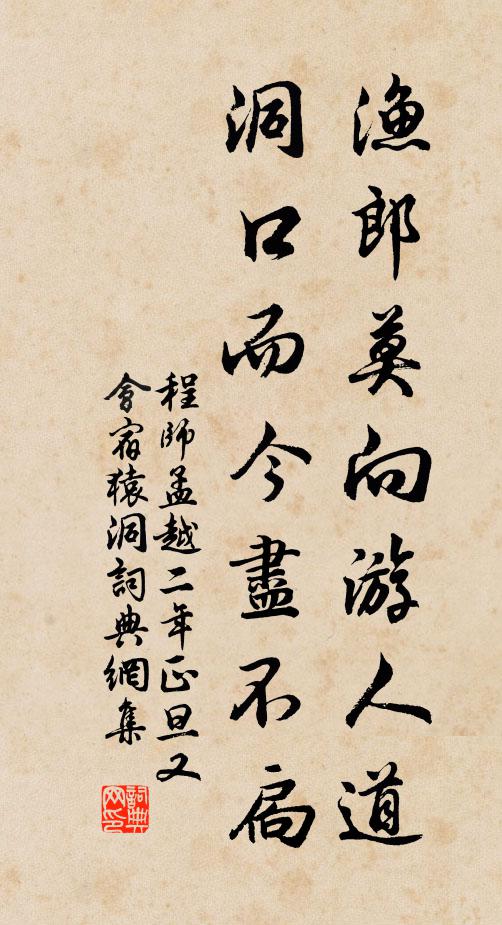 漁郎莫向游人道
洞口而今盡不扃
程師孟越二年正旦又
會宿猿洞詞典網集
詞典
网印